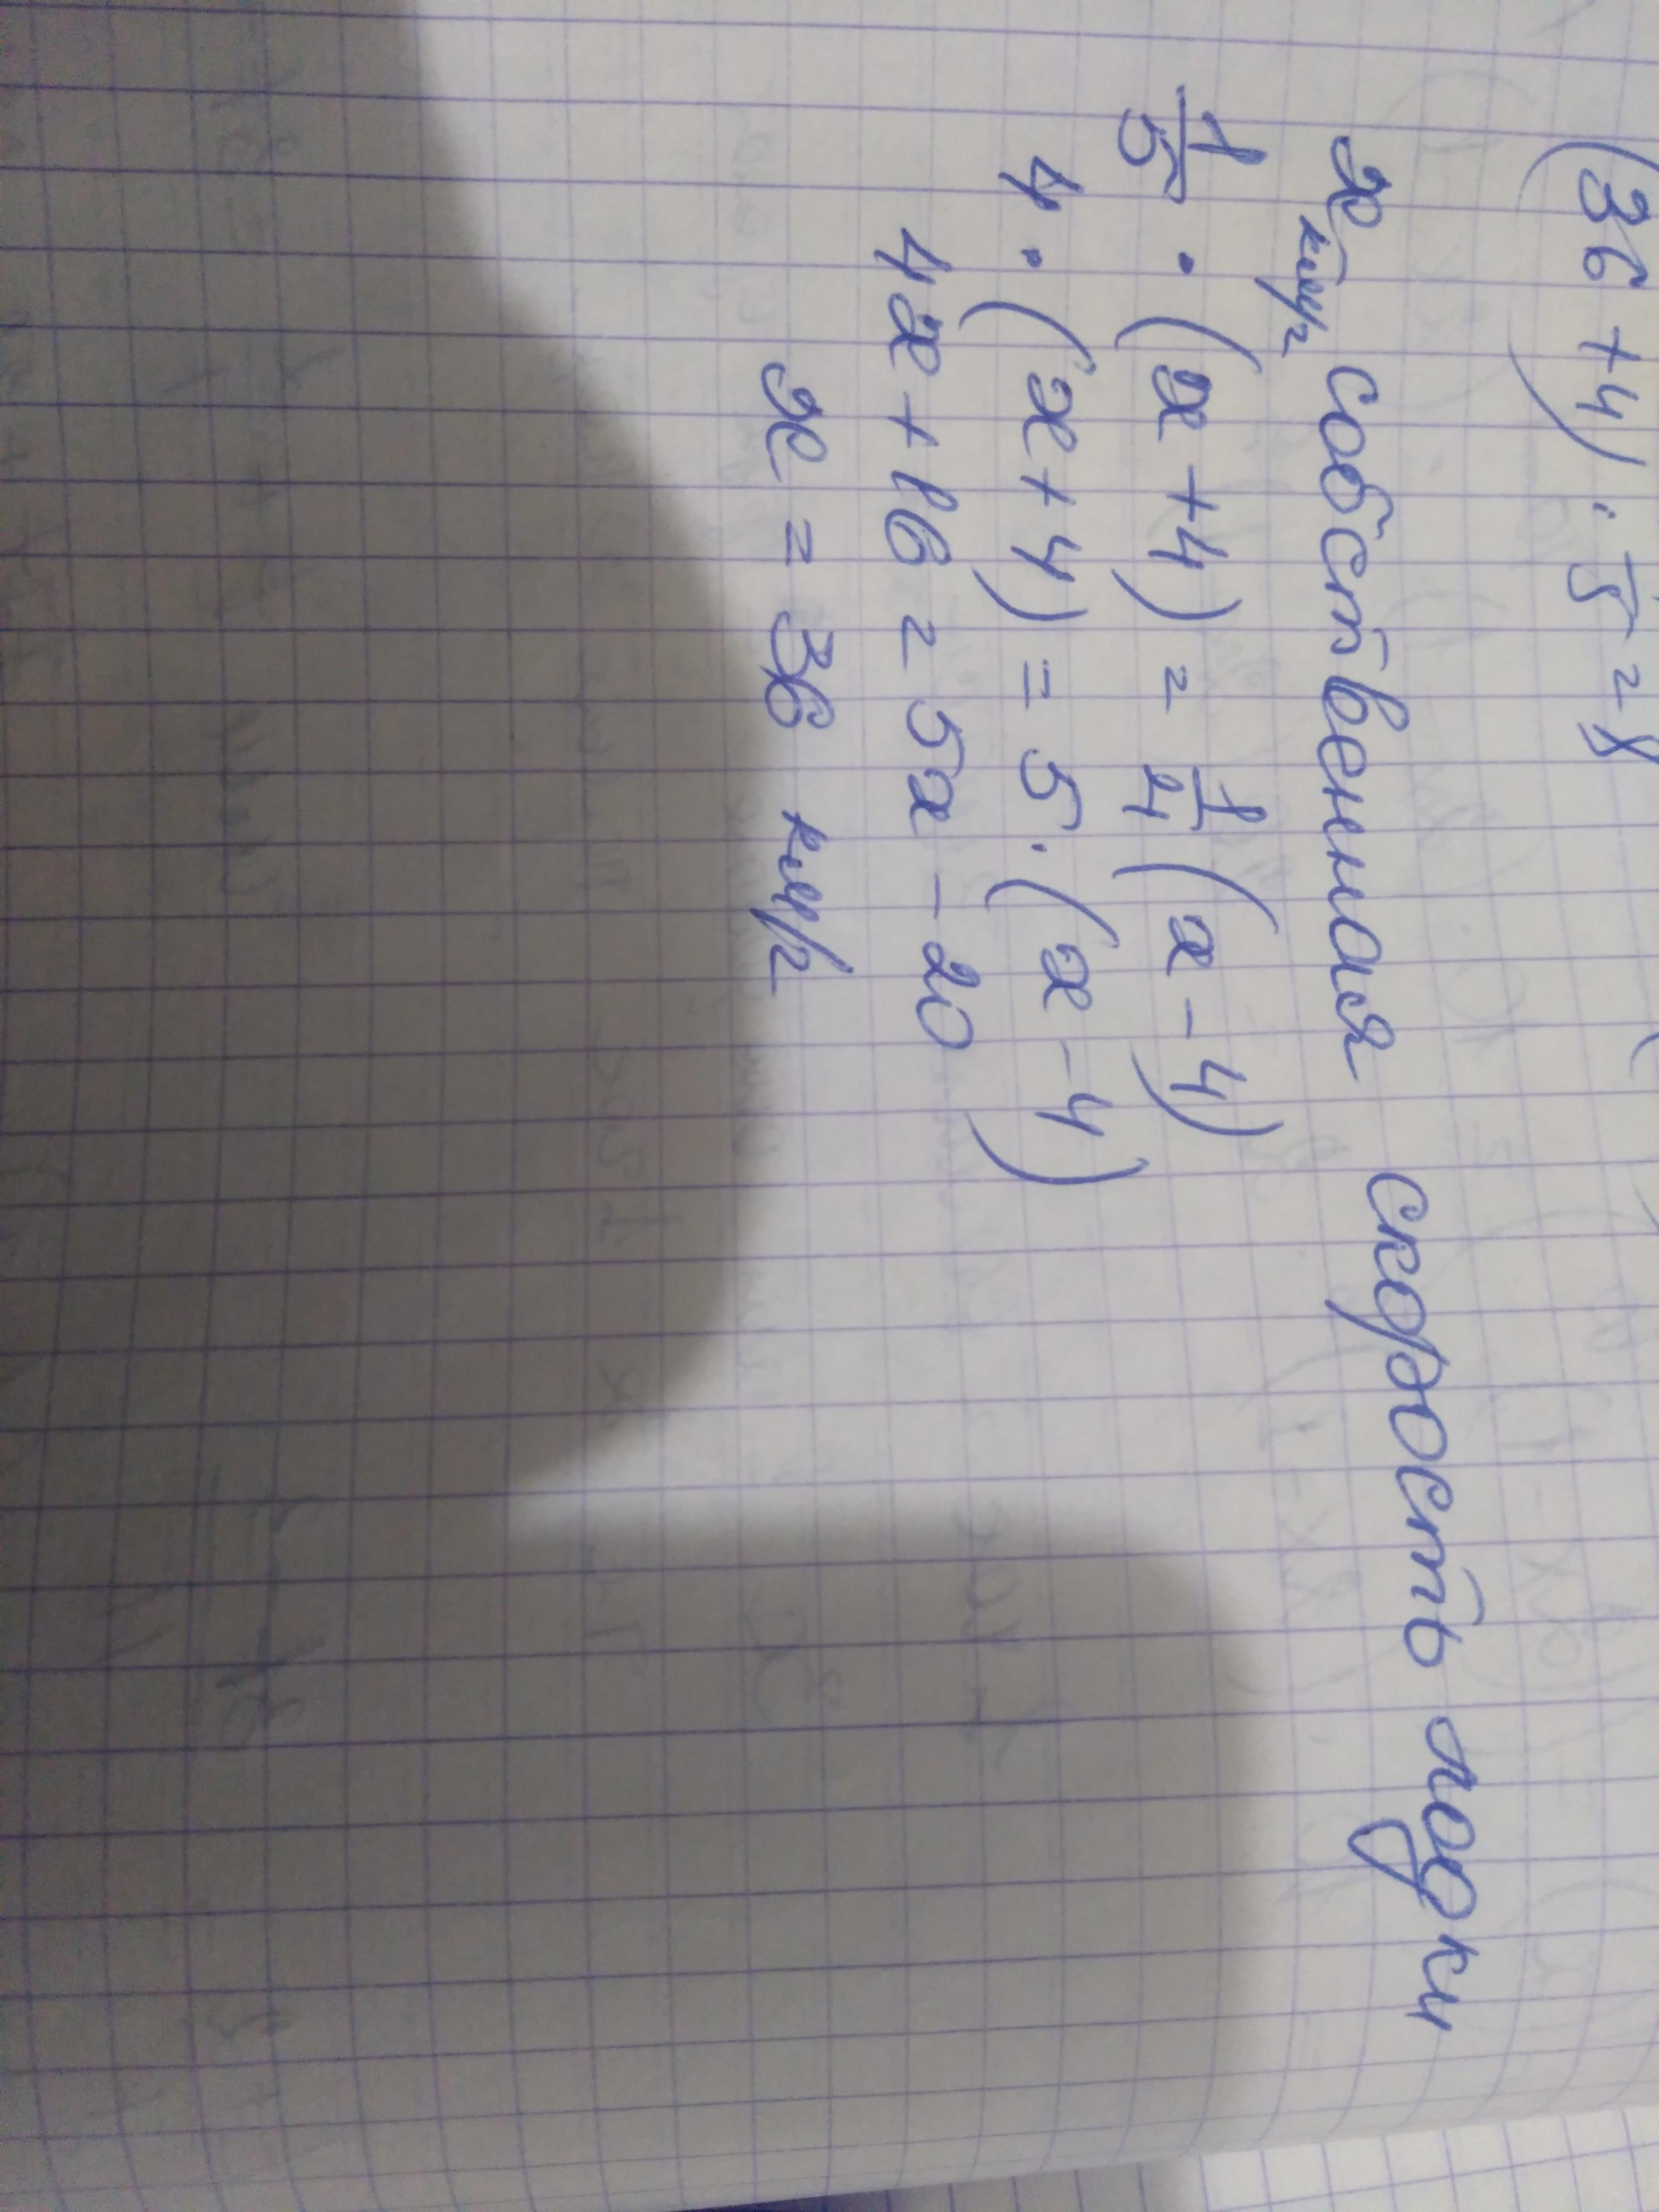 (36+4) : 5 = 8
x км/ч собственная скорость лодки
1/5 · (x+4) = 1/4 (x-4)
4 · (x+4) = 5 · (x-4)
4x+16 = 5x-20
x = 36 км/ч